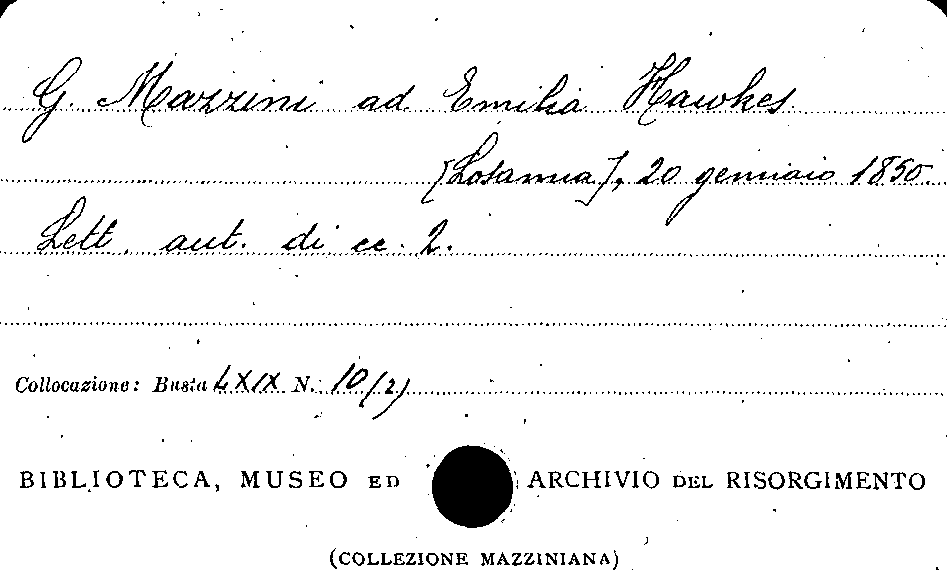 G. Mazzini ad Emilia Hawkes
[Losanna], 20 gennaio 1850.
Lett. aut. di cc. 2.
Collocazione: Busta LXIX N. 10/2)
BIBLIOTECA, MUSEO ED ARCHIVIO DEL RISORGIMENTO
(COLLEZIONE MAZZINIANA)